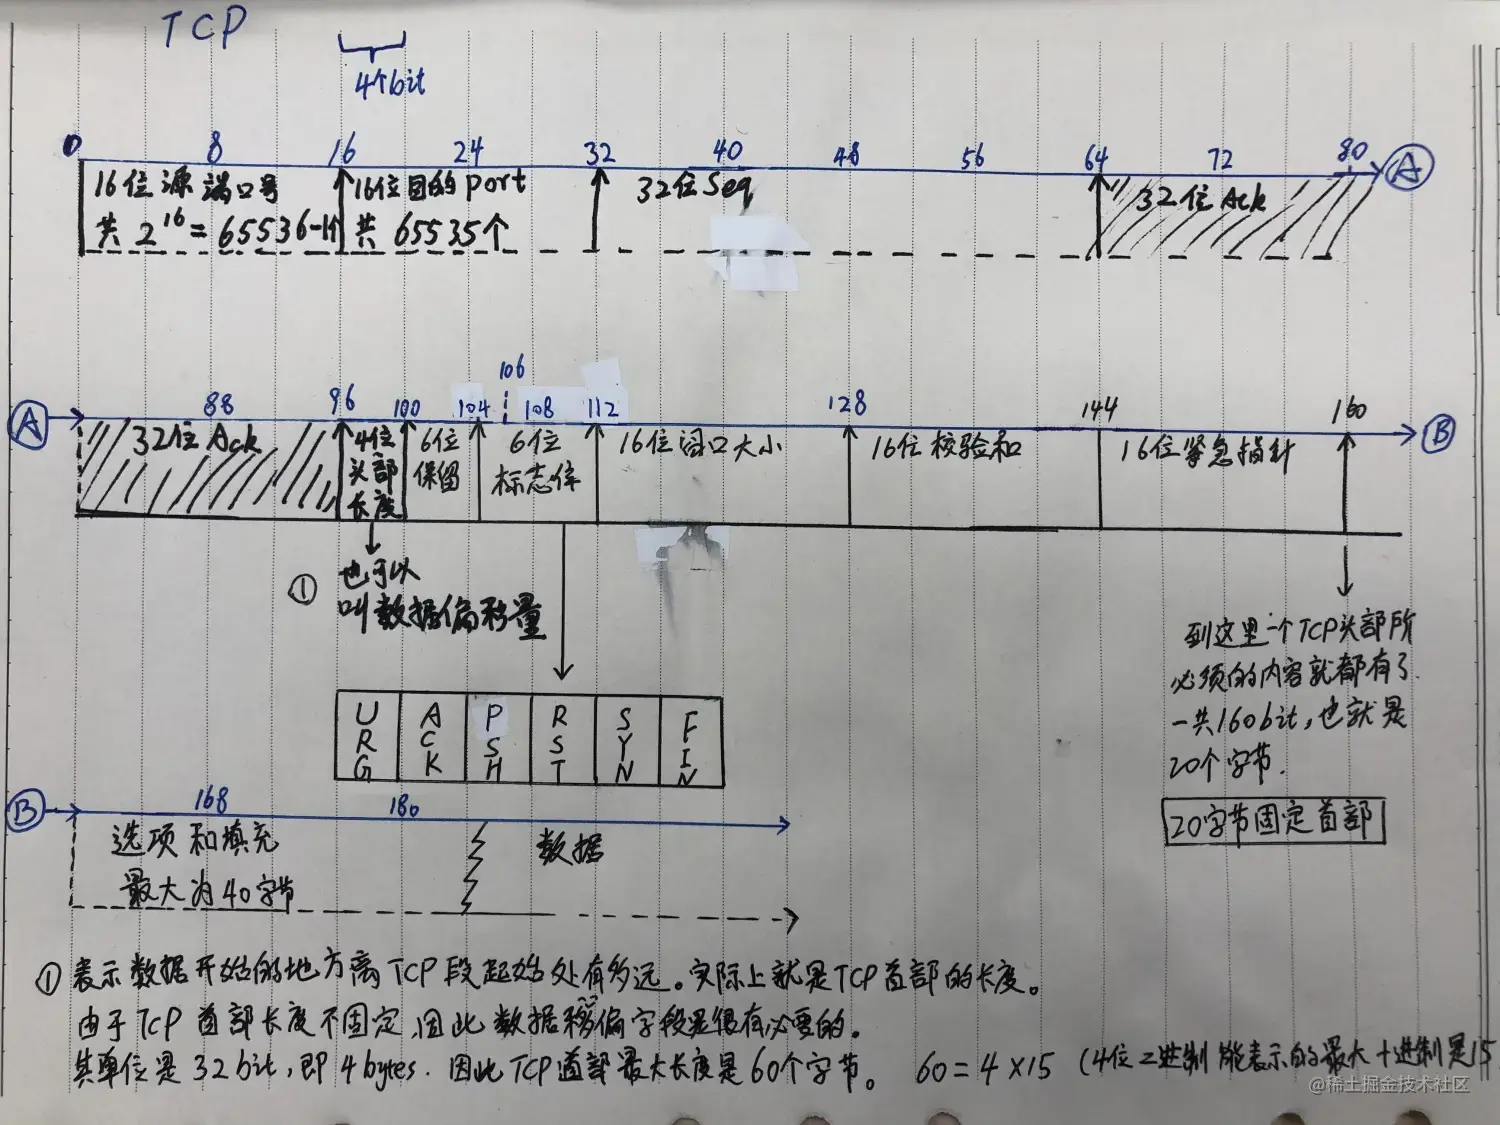 TCP
4个bit
0 8 16 24 32 40 48 56 64 72 80 A
16位源端口号 16位目的port 32位Seq 32位Ack
共2^16=65536-1个 共65535个
106
A 88 96 100 104 108 112 128 144 160 B
32位Ack 4位 6位 6位 16位窗口大小 16位校验和 16位紧急指针
头部 保留 标志位
长度
① 也可以
叫数据偏移量
到这里一个TCP头部所
必须的内容就都有了.
一共160bit,也就是
20个字节.
20字节固定首部
URG ACK PSH RST SYN FIN
B 168 180
选项和填充 数据
最大为40字节
① 表示数据开始的地方离TCP段起始处有多远。实际上就是TCP首部的长度。
由于TCP首部长度不固定,因此数据移偏字段是很有必要的。
其单位是32bit,即4bytes.因此TCP首部最大长度是60个字节。 60=4×15 (4位二进制能表示的最大十进制是15
@稀土掘金技术社区